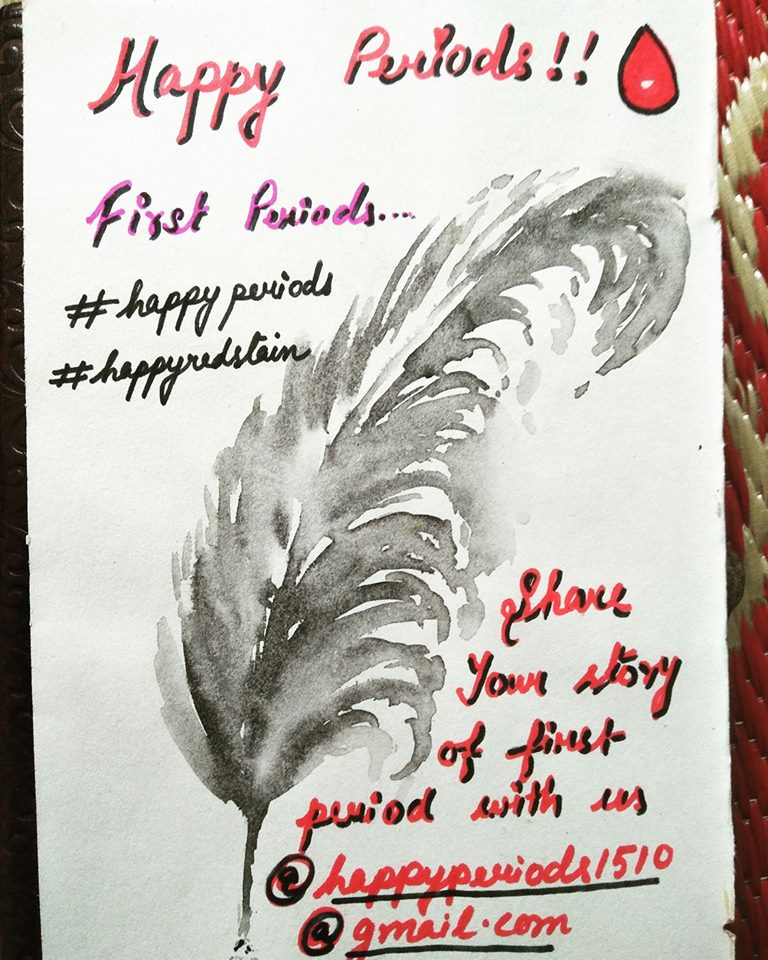 Happy Periods!!
First Periods...
#happy periods
#happyredstain
Share
Your story
of first
period with us
@happyperiods1510
@gmail.com